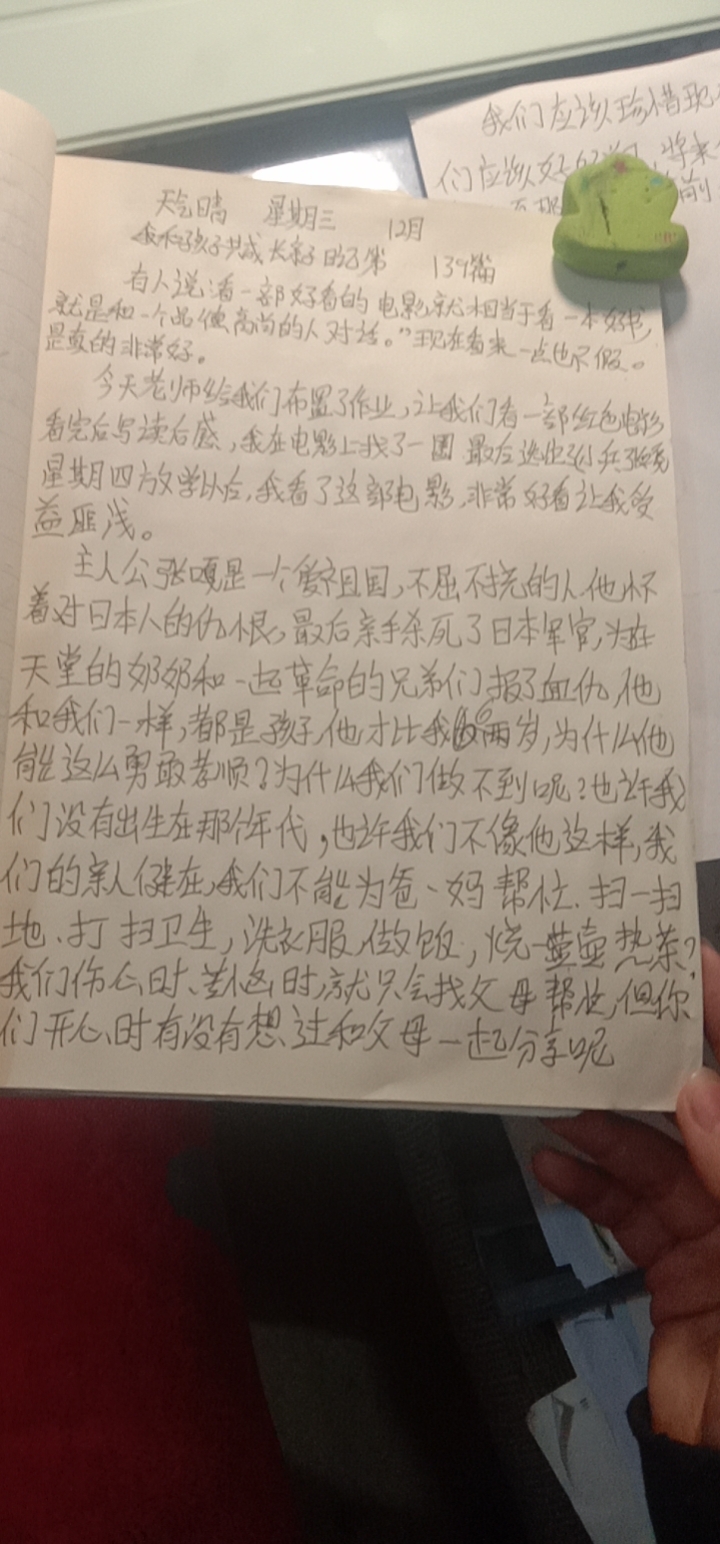 我们应该珍惜现
们应该好好学习,将来
前
天气晴 星期三 12月
我和孩子共成长亲子日记第 139篇
有人说:看一部好看的电影,就相当于看一本好书,
就是和一个品德高尚的人对话。”现在看来一点也不假。
是真的非常好。
今天老师给我们布置了作业,让我们看一部红色电影
看完后写读后感,我在电影上找了一圈最后选出了小兵张嘎
星期四放学以后,我看了这部电影,非常好看让我受
益匪浅。
主人公张嘎是一个爱祖国,不屈不挠的人,他怀
着对日本人的仇恨,最后亲手杀死了日本军官,为在
天堂的奶奶和一起革命的兄弟们报了血仇,他
和我们一样,都是孩子,他才比我大两岁,为什么他
能这么勇敢孝顺?为什么我们做不到呢?也许我
们没有出生在那个年代,也许我们不像他这样,我
们的亲人健在,我们不能为爸、妈帮忙、扫一扫
地、打扫卫生,洗衣服,做饭,烧一壶热茶?
我们伤心时、难过时,就只会找父母帮忙,但你
们开心时有没有想过和父母一起分享呢